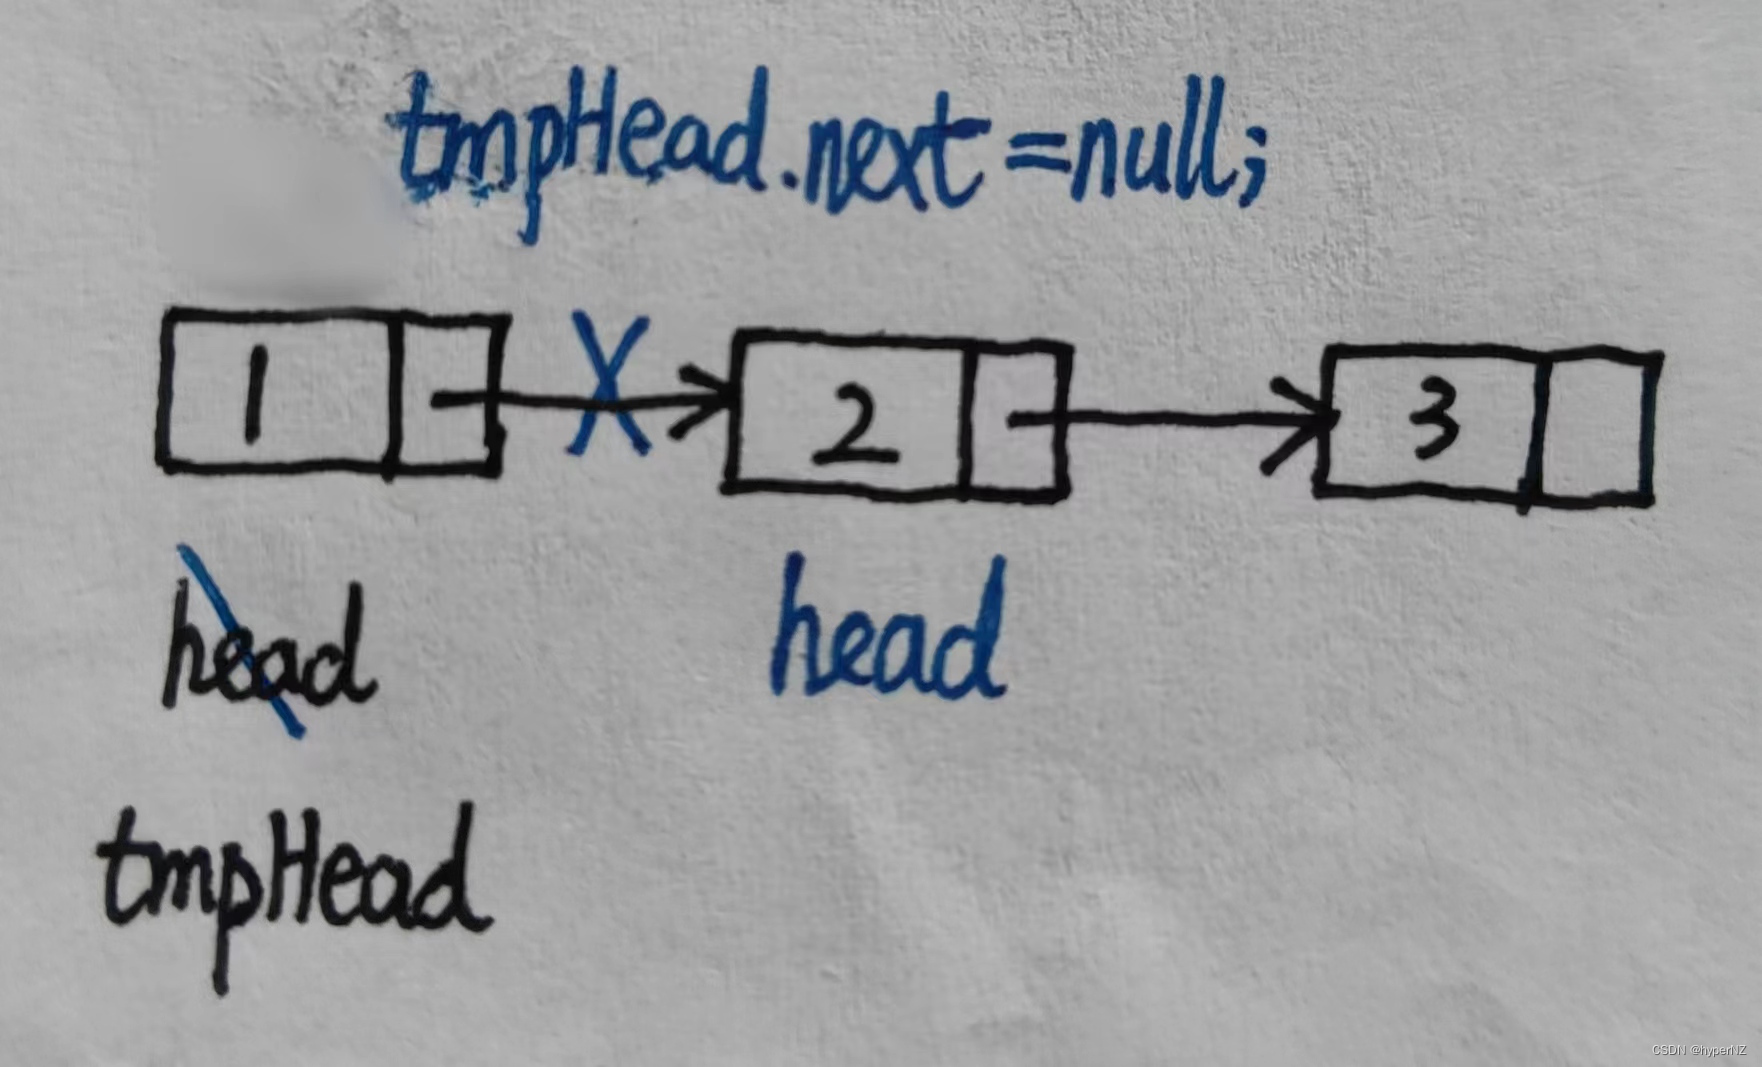 tmpHead.next=null;
1 2 3
head head
tmpHead
CSDN @hyperNZ